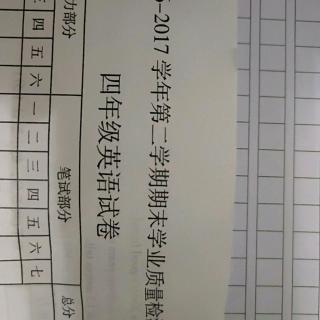 6-2017 学年第二学期期末学业质量检
四年级英语试卷
力部分 笔试部分 总分
四 五 六 一 二 三 四 五 六 七